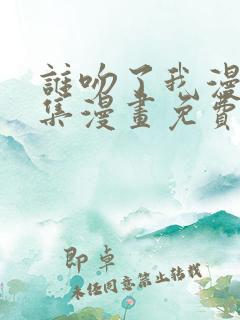 誰吻了我漫
集漫畫免費
即卓
未经同意禁止转载